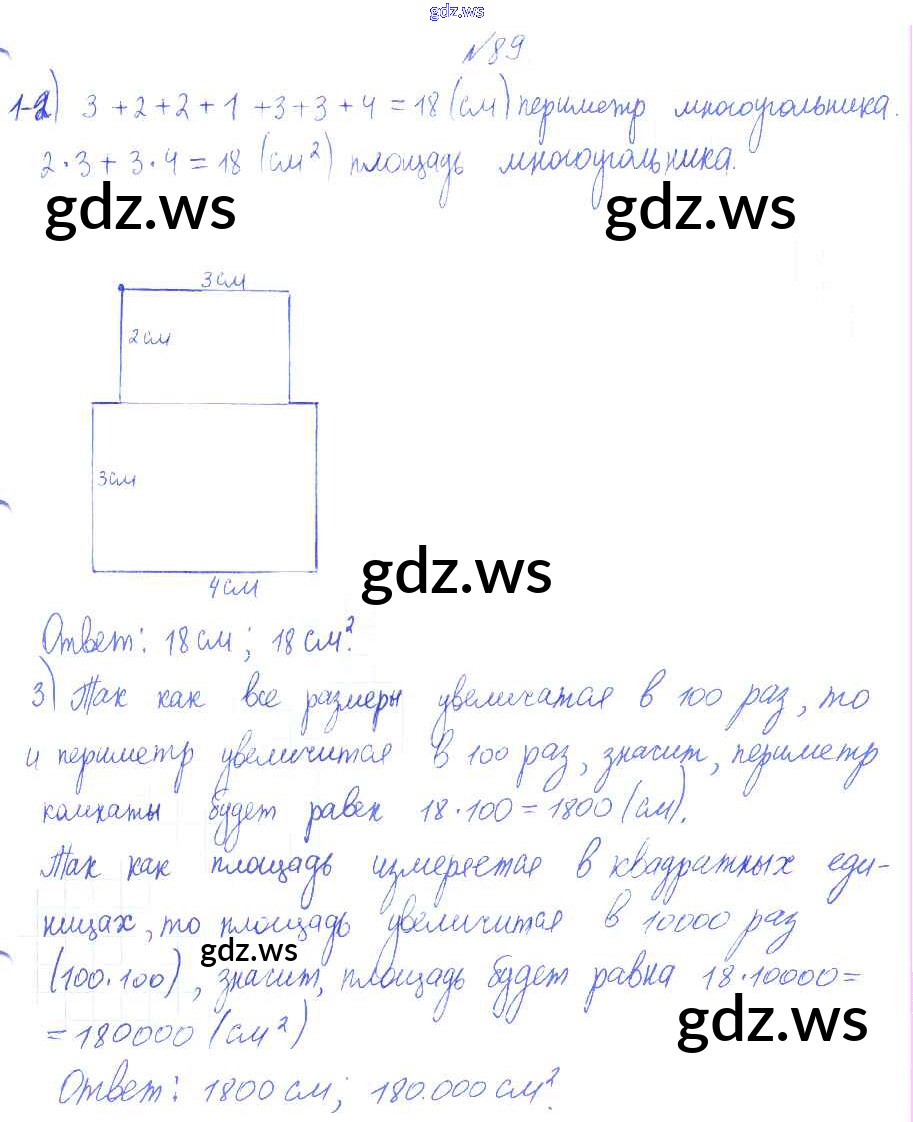 gdz.ws
№89
1-2) 3+2+2+1+3+3+4=18 (см) периметр многоугольника.
2·3+3·4=18 (см²) площадь многоугольника.
gdz.ws gdz.ws
3см
2см
3см
gdz.ws
4см
Ответ: 18см; 18см².
3) Так как все размеры увеличатся в 100 раз, то
и периметр увеличится в 100 раз, значит, периметр
комнаты будет равен 18·100=1800 (см).
Так как площадь измеряется в квадратных еди-
ницах, то площадь увеличится в 10000 раз
gdz.ws
(100·100), значит, площадь будет равна 18·10000=
=180000 (см²)
gdz.ws
Ответ: 1800см; 180.000см².